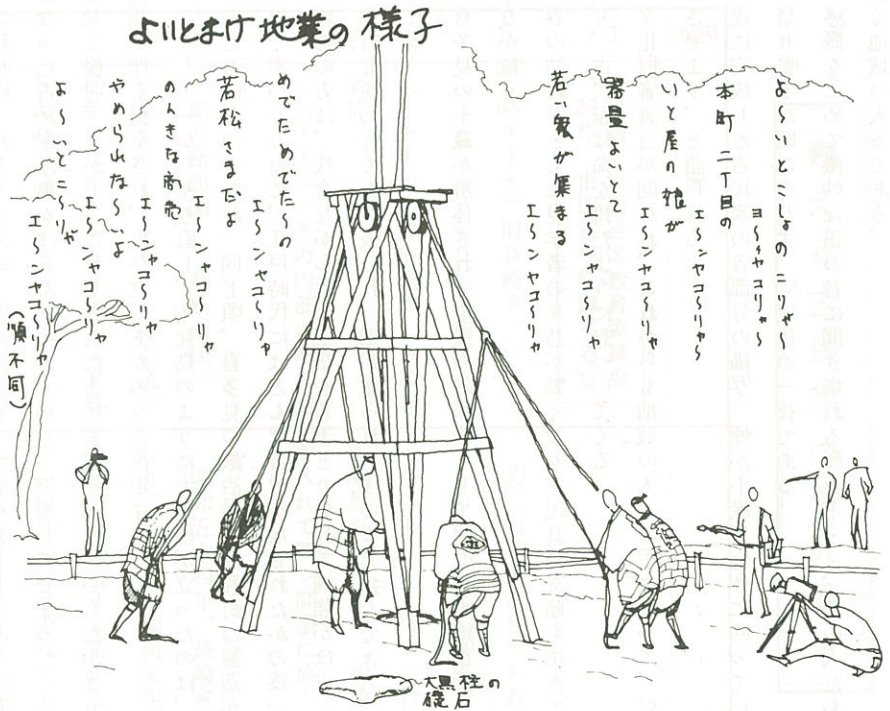 よいとまけ地業の様子
よ〜いとこしょのこりゃ〜
ヨ〜イヤコリャ〜
本町二丁目の
エ〜ンヤコ〜リャ〜
いと屋の娘が
エ〜ンヤコ〜リャ
器量よいとて
エ〜ンヤコ〜リャ
若い衆が集まる
エ〜ンヤコ〜リャ
めでためでた〜の
エ〜ンヤコ〜リャ
若松さまだよ
エ〜ンヤコ〜リャ
のんきな商売
エ〜ンヤコ〜リャ
やめられな〜いよ
エ〜ンヤコ〜リャ
よ〜いとこ〜りゃ
エ〜ンヤコ〜リャ
(順不同)
大黒柱の
礎石